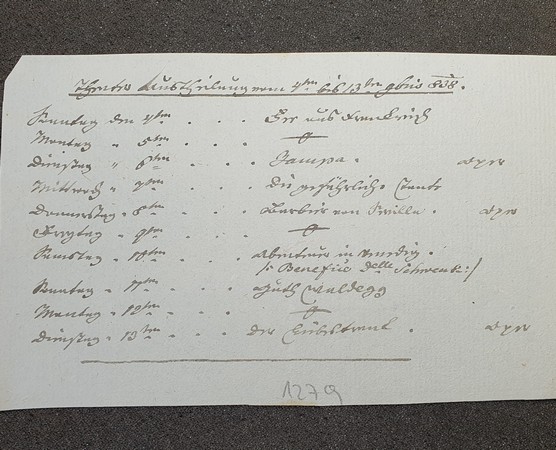 Theater Austheilung vom 4ten bis 13ten 9bris 838.
Sonntag den 4ten . . . Fee aus Frankreich
Montag " 5ten . . .
Dinstag " 6ten . . . Zampa . oper
Mittwoch " 7ten . . . Die gefährliche Tante
Donnerstag " 8ten . . . Barbier von Sevilla . oper
Freytag " 9ten . . .
Samstag " 10ten . . . Abenteuer in Venedig .
/: Benefice der :/
Sonntag " 11ten . . . Guth Waldegg
Montag " 12ten . . .
Dinstag " 13ten . . . Der Liebestrank . oper
1279